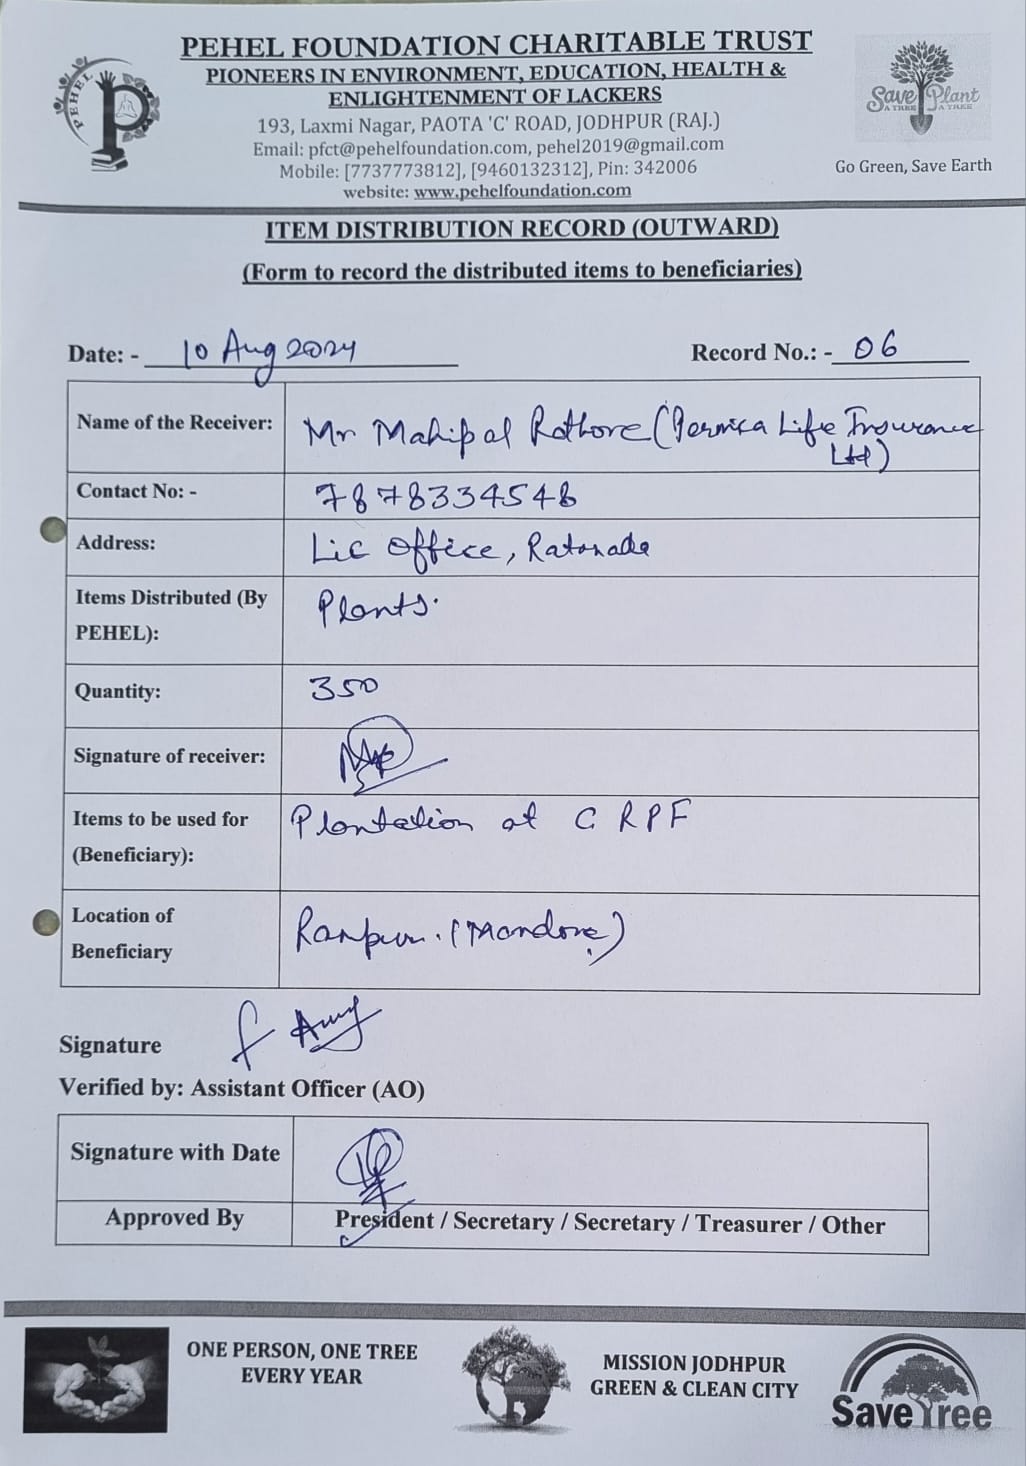 PEHEL FOUNDATION CHARITABLE TRUST
PIONEERS IN ENVIRONMENT, EDUCATION, HEALTH &
ENLIGHTENMENT OF LACKERS
193, Laxmi Nagar, PAOTA 'C' ROAD, JODHPUR (RAJ.)
Email: pfct@pehelfoundation.com, pehel2019@gmail.com
Mobile: [7737773812], [9460132312], Pin: 342006
website: www.pehelfoundation.com
PEHEL
Save Plant
A TREE A TREE
Go Green, Save Earth
ITEM DISTRIBUTION RECORD (OUTWARD)
(Form to record the distributed items to beneficiaries)
Date: - 10 Aug 2024 Record No.: - 06
Name of the Receiver: Mr Mahipal Rathore ( Life Insurance
Ltd)
Contact No: - 7878334548
Address: Lic Office, Ratanada
Items Distributed (By
PEHEL): Plants.
Quantity: 350
Signature of receiver:
Items to be used for
(Beneficiary): Plantation at CRPF
Location of
Beneficiary (Mandore)
Signature
Verified by: Assistant Officer (AO)
Signature with Date
Approved By President / Secretary / Secretary / Treasurer / Other
ONE PERSON, ONE TREE
EVERY YEAR
MISSION JODHPUR
GREEN & CLEAN CITY
Save Tree